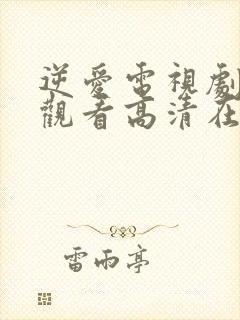 逆愛電視劇
觀看高清在
雷雨亭